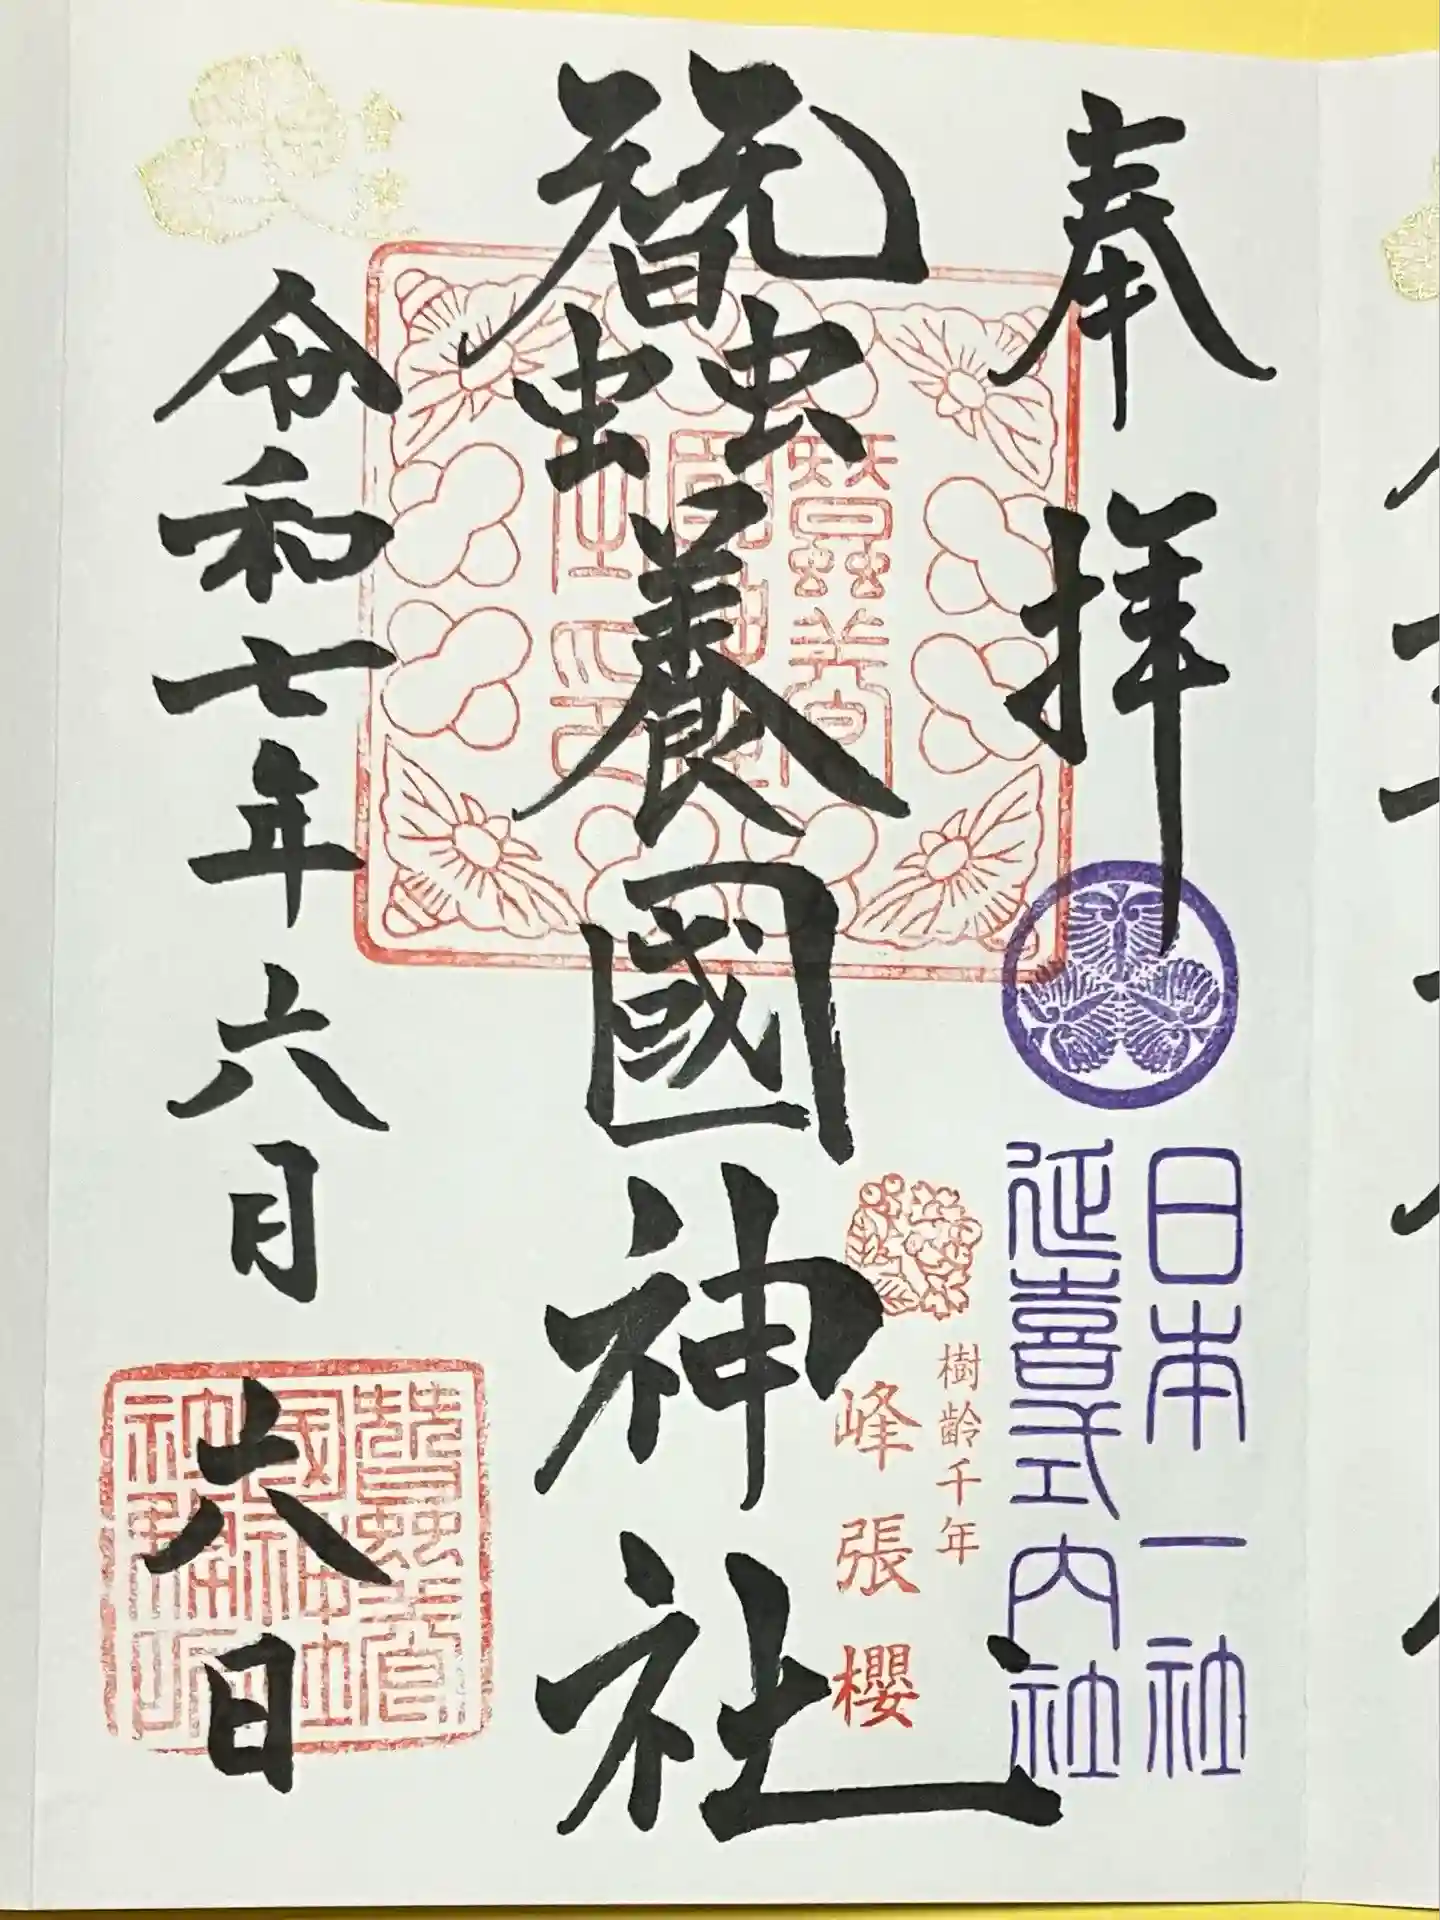 奉拝
日本一社
延喜式内社
樹齢千年
峰張櫻
蠶養國神社
蠶養
國神
社印
令和七年六月六日
會津